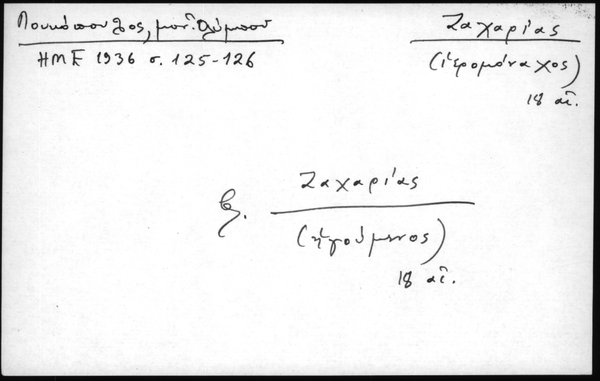 Λουκόπουλος, μον. Ὀλύμπου
ΗΜΕ 1936 σ. 125-126
Ζαχαρίας
(ἱερομόναχος)
18 αἰ.
βλ. Ζαχαρίας
(ἡγούμενος)
18 αἰ.